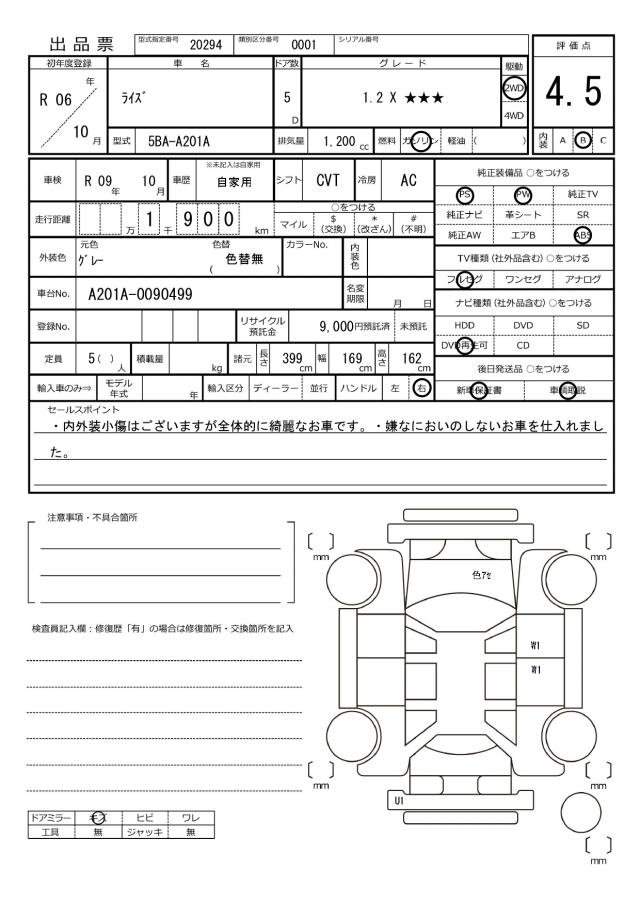 出品票
型式指定番号 20294 類別区分番号 0001 シリアル番号
評価点
4.5
初年度登録 車名 ドア数 グレード 駆動
R 06 年 ライズ 5 D 1.2 X ★★★ 2WD
4WD
10 月
型式 5BA-A201A 排気量 1.200 cc 燃料 ガソリン 軽油 ( )
内装 A B C
車検 R 09 年 10 月 車歴 ※未記入は自家用 自家用 シフト CVT 冷房 AC
走行距離 万 1 千 9 0 0 km
○をつける
マイル $(交換) *(改ざん) #(不明)
外装色 元色 グレー 色替 ( 色替無 ) カラーNo. 内装色
車台No. A201A-0090499 名変期限 月 日
登録No. リサイクル預託金 9,000円預託済 未預託
定員 5 ( ) 人 積載量 kg 諸元 長さ 399 cm 幅 169 cm 高さ 162 cm
輸入車のみ⇒ モデル年式 年 輸入区分 ディーラー 並行 ハンドル 左 右
純正装備品 ○をつける
PS PW 純正TV
純正ナビ 革シート SR
純正AW エアB ABS
TV種類 (社外品含む) ○をつける
フルセグ ワンセグ アナログ
ナビ種類 (社外品含む) ○をつける
HDD DVD SD
DVD再生可 CD
後日発送品 ○をつける
新車保証書 車輌取説
セールスポイント
・内外装小傷はございますが全体的に綺麗なお車です。・嫌なにおいのしないお車を仕入れまし
た。
注意事項・不具合箇所
検査員記入欄：修復歴「有」の場合は修復箇所・交換箇所を記入
〔 〕 mm
〔 〕 mm
色7ｾ
W1
W1
〔 〕 mm
〔 〕 mm
U1
〔 〕 mm
ドアミラー キズ ヒビ ワレ
工具 無 ジャッキ 無